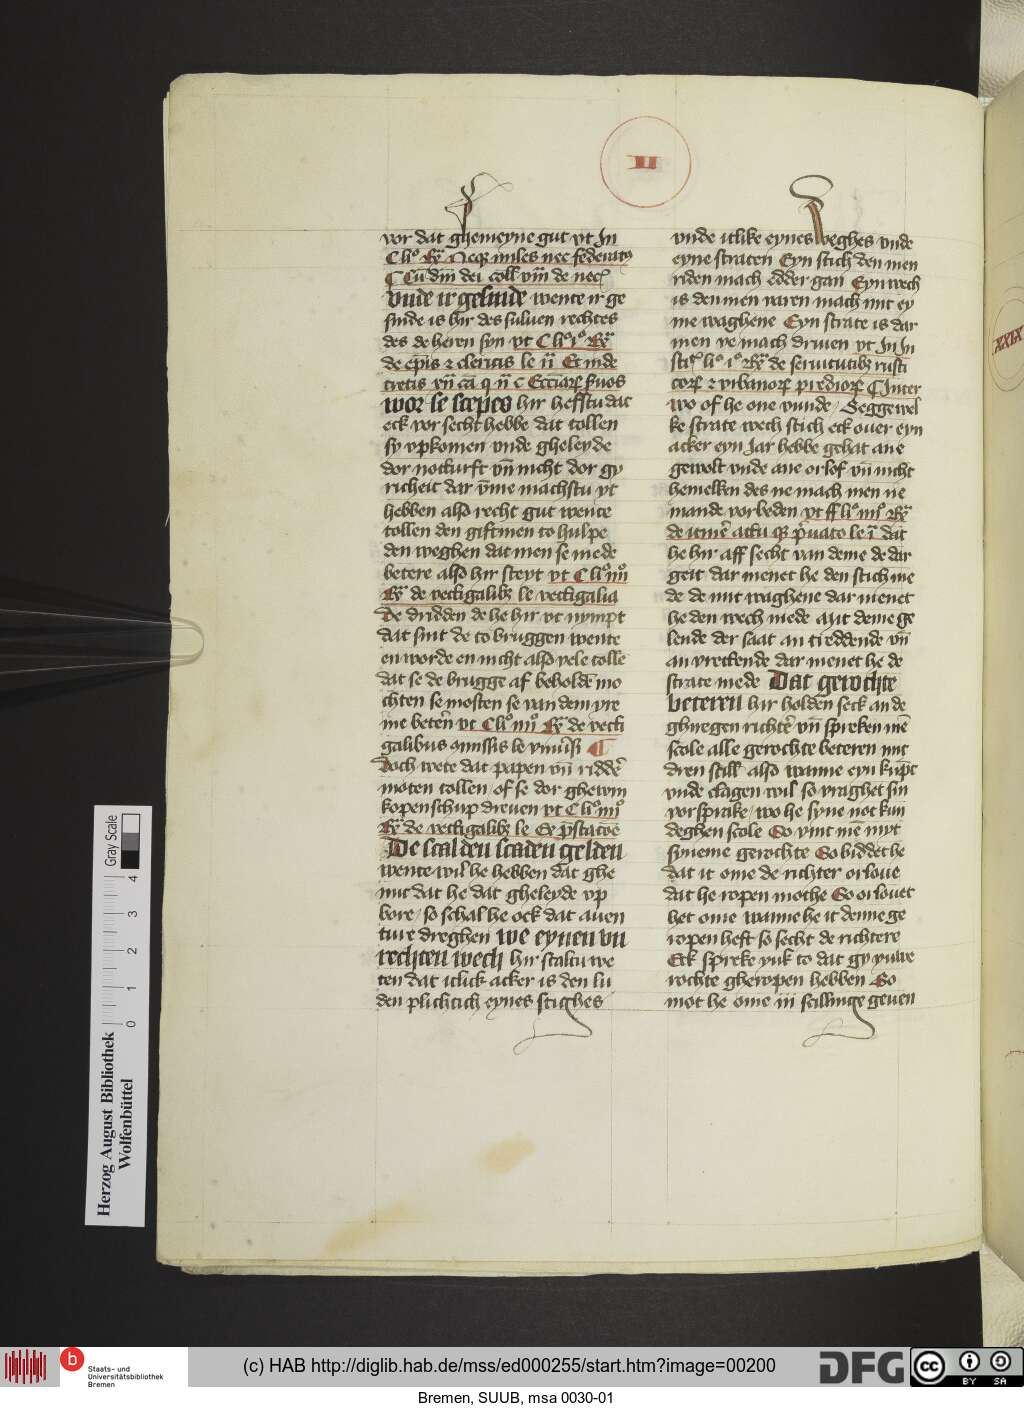 II
vor dat ghemeyne gut vt In
C li° Rx Neqꝫ miles nec federato
C Cū dm̄ dei coll vm̄ de nec
Vnde ir gesinde wente ir ge
sinde is hir des suluen rechtes
des de heren syn vt C li° i° Rx
de ep̄is ⁊ clericis le ii Et in de
cretis
wor se scepes hir hefstu dat
eck vor secht hebbe dat tollen
sy vpkomen vnde gheleyde
dor notturft vn̄ nicht dor gy
richeit dar v̄me machstu yt
hebben also recht gut wente
tollen den giftmen to hulpe
den weghen dat men se mede
betere also hir steyt vt C li° iiii°
Rx de vectigalibꝫ le vectigalia
De dridden de he hir vt nympt
dat sint de to bruggen wente
en worde en nicht also vele tolle
dat se de brugge af beholdē mo
chten se mosten se van dem vre
me betērn vt C li° iiii° Rx de vecti
galibus omissis le
Doch wete dat papen vn̄ riddēr
moten tollen of se dor ghewin
kopenschup dreuen vt C li° iiii°
Rx de vectigalibꝫ le Ex p̄stacōe
De scal den scaden gelden
wente wil he hebben dat ghe
nut dat he dat gheleyde vp
bore so schal he ock dat auen
ture dreghen we eynen vn
rechten wech hir scaltu we
ten dat itlick acker is den lu
den plichtich eynes stighes
vnde itlike eynes weghes vnde
eyne straten Eyn stich den men
riden mach edder gan Eyn wech
is den men varen mach mit ey
me waghene Eyn strate is dar
men ve mach driuen vt In In
stit li° i° Rx de seruitutibꝫ rusti
coꝝ ⁊ vrbanoꝝ prediorꝝ C Inter
wo of he one vunde Seggewel
ke strate wech stich eck ouer eyn
acker eyn Jar hebbe gehat ane
gewolt vnde ane orlof vn̄ nicht
hemelken des ne mach men ne
mande vorbeden vt ff li° iiii° Rx
de itinē actu qꝫ p̄uato le i dat
he hir aff secht van deme de dar
geit dar menet he den stich me
de de mit waghene dar menet
he den wech mede Mit deme ge
lende der saat an treddende vn̄
an vreckende dar menet he de
strate mede Dat gerochte
beteren hir holden seck an de
ghenegen richtēr vn̄ spreken mē
scole alle gerochte beteren mit
dren still also wanne eyn kūpt
vnde clagen wil so vraghet sin
vorsprake wo he syne not kun
deghen scole So vint me myt
syneme gerochte So biddet he
dat it ome de richter orloue
dat he ropen mothe So orlouet
het ome wanne he it denne ge
ropen heft so secht de richtere
Eck spreke yuk to dat gy yuwe
rochte gheropen hebben So
mot he ome iii scillinge geuen
XXIX
Herzog August Bibliothek
Wolfenbüttel
0 1 2 3 4
Gray Scale
Staats- und
Universitätsbibliothek
Bremen
(c) HAB http://diglib.hab.de/mss/ed000255/start.htm?image=00200
DFG
CC BY SA
Bremen, SUUB, msa 0030-01